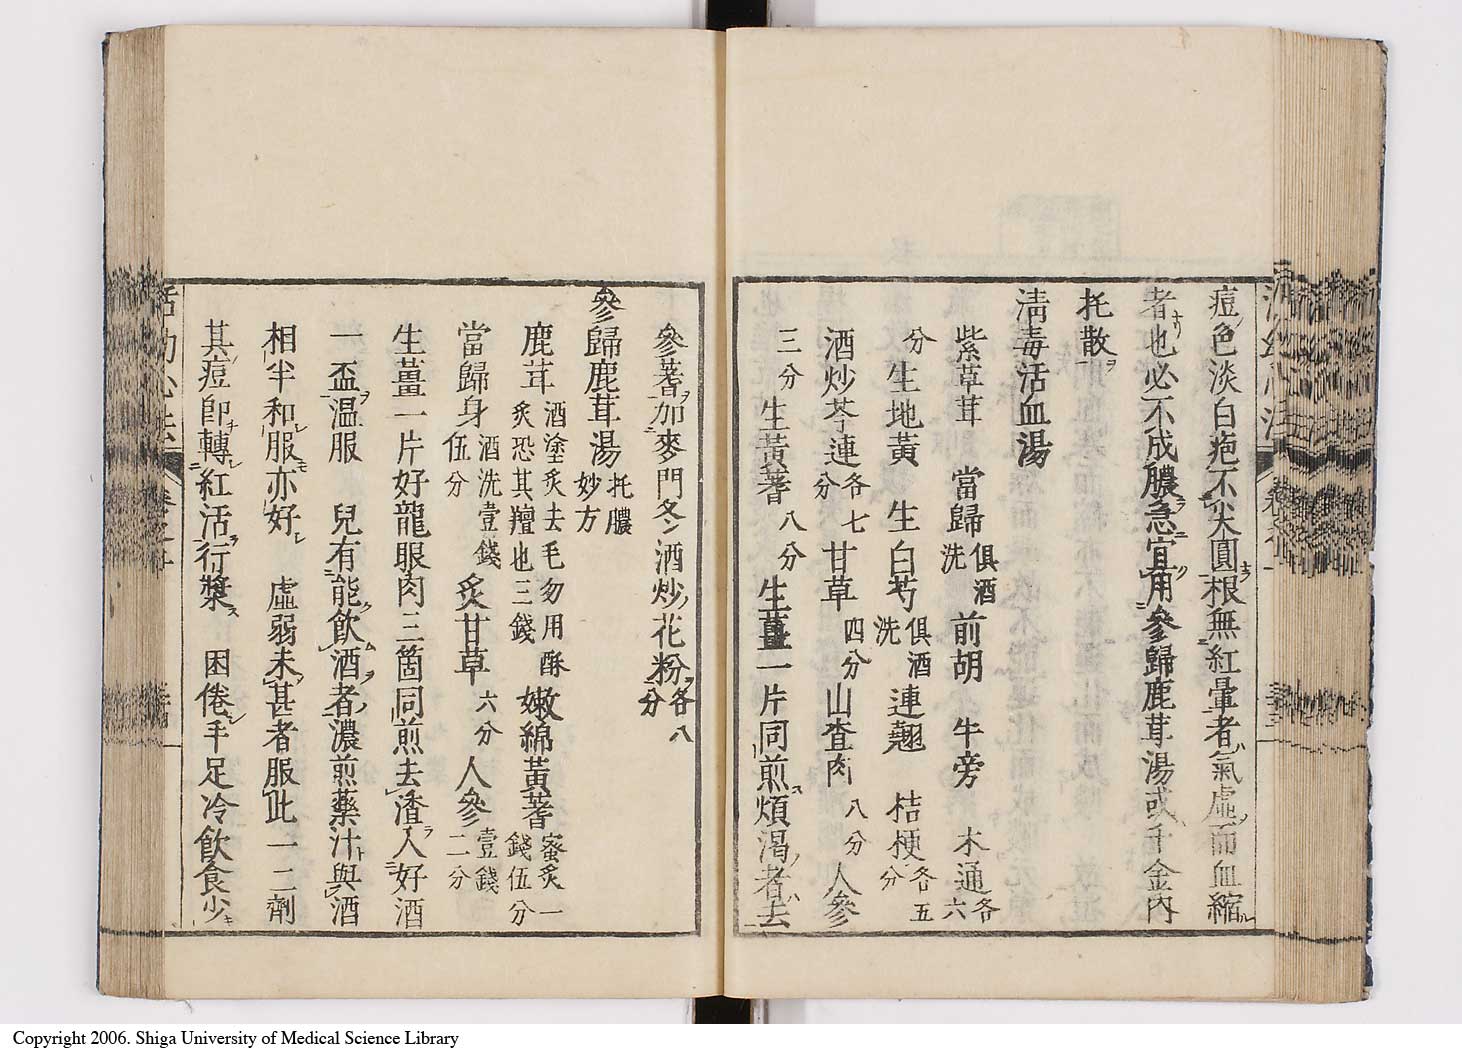 痘色淡白疤不尖圓根無紅暈者氣虛而血縮
者也必不成膿急宜用參歸鹿茸湯或千金內
托散
淸毒活血湯
紫草茸 當歸俱酒洗 前胡 牛旁 木通各六
分 生地黃 生白芍俱酒洗 連翹 桔梗各五分
酒炒芩連各七分 甘草四分 山查肉八分 人參
三分 生黃蓍八分 生薑一片同煎煩渴者去
參蓍加麥門冬酒炒花粉各八分
參歸鹿茸湯托膿妙方
鹿茸酒塗炙去毛勿用酥炙恐其羶也三錢 嫩綿黃蓍蜜炙一錢伍分
當歸身酒洗壹錢伍分 炙甘草六分 人參壹錢二分
生薑一片好龍眼肉三箇同煎去渣入好酒
一盃溫服 兒有能飲酒者濃煎藥汁與酒
相半和服亦好 虛弱未甚者服此一二劑
其痘卽轉紅活行漿 困倦手足冷飲食少
Copyright 2006. Shiga University of Medical Science Library